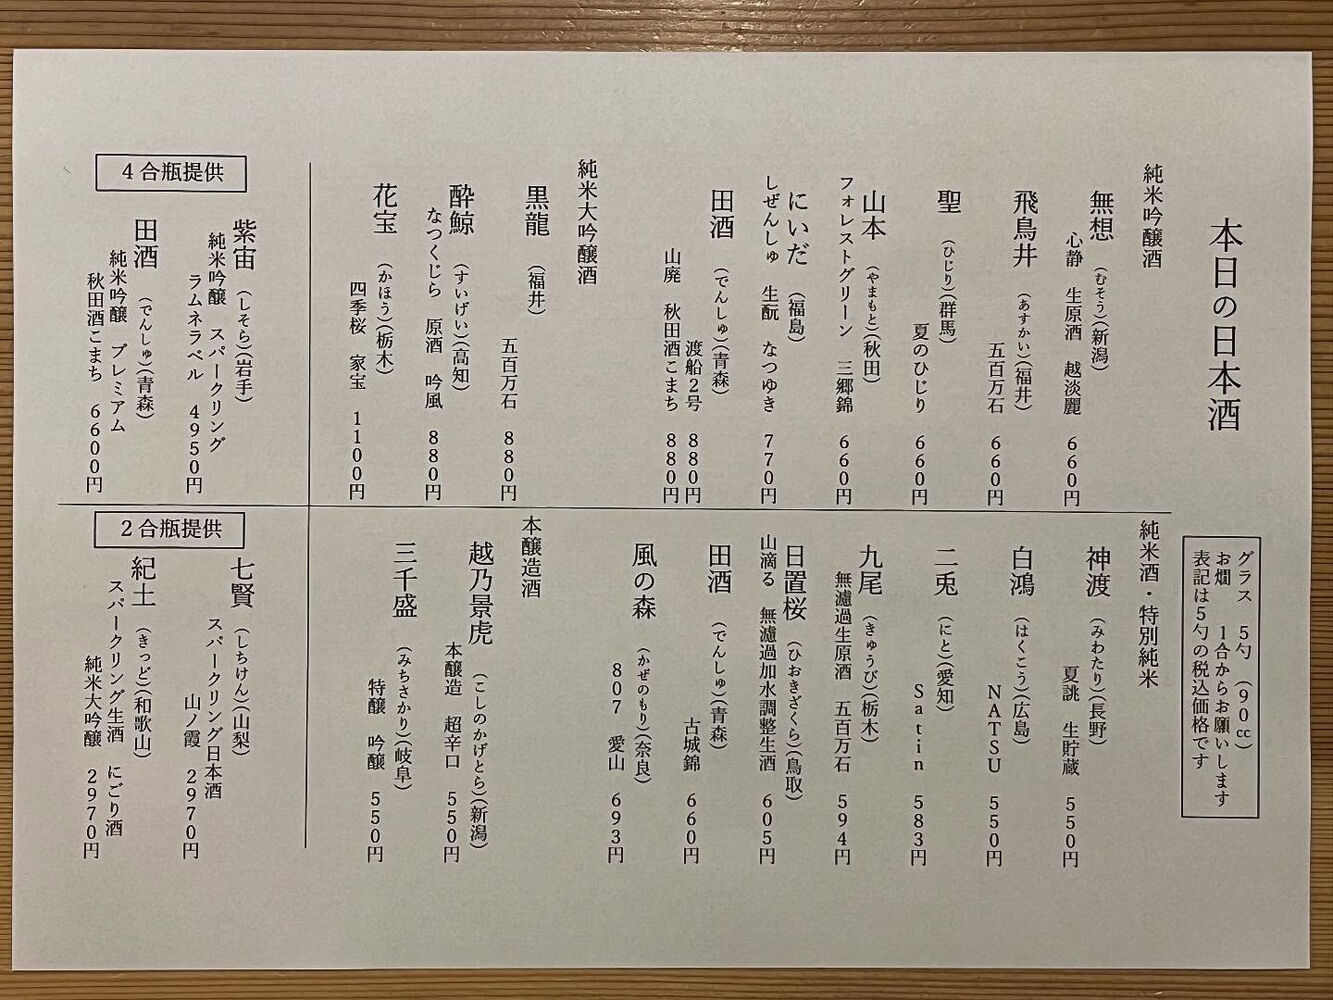 本日の日本酒
グラス　5勺　（90㏄）
お燗　1合からお願いします
表記は5勺の税込価格です
純米吟醸酒
無想　（むそう）（新潟）
心静　生原酒　越淡麗　660円
飛鳥井　（あすかい）（福井）
五百万石　660円
聖　（ひじり）（群馬）
夏のひじり　660円
山本　（やまもと）（秋田）
フォレストグリーン　三郷錦　660円
にいだ　（福島）
しぜんしゅ　生酛　なつゆき　770円
田酒　（でんしゅ）（青森）
渡船2号　880円
山廃　秋田酒こまち　880円
純米大吟醸酒
黒龍　（福井）
五百万石　880円
酔鯨　（すいげい）（高知）
なつくじら　原酒　吟風　880円
花宝　（かほう）（栃木）
四季桜　家宝　1100円
純米酒・特別純米
神渡　（みわたり）（長野）
夏誂　生貯蔵　550円
白鴻　（はくこう）（広島）
NATSU　550円
二兎　（にと）（愛知）
Satin　583円
九尾　（きゅうび）（栃木）
無濾過生原酒　五百万石　594円
日置桜　（ひおきざくら）（鳥取）
山滴る　無濾過加水調整生酒　605円
田酒　（でんしゅ）（青森）
古城錦　660円
風の森　（かぜのもり）（奈良）
807　愛山　693円
本醸造酒
越乃景虎　（こしのかげとら）（新潟）
本醸造　超辛口　550円
三千盛　（みちさかり）（岐阜）
特醸　吟醸　550円
4合瓶提供
紫宙　（しそら）（岩手）
純米吟醸　スパークリング
ラムネラベル　4950円
田酒　（でんしゅ）（青森）
純米吟醸　プレミアム
秋田酒こまち　6600円
2合瓶提供
七賢　（しちけん）（山梨）
スパークリング日本酒
山ノ霞　2970円
紀土　（きっど）（和歌山）
スパークリング生酒　にごり酒
純米大吟醸　2970円